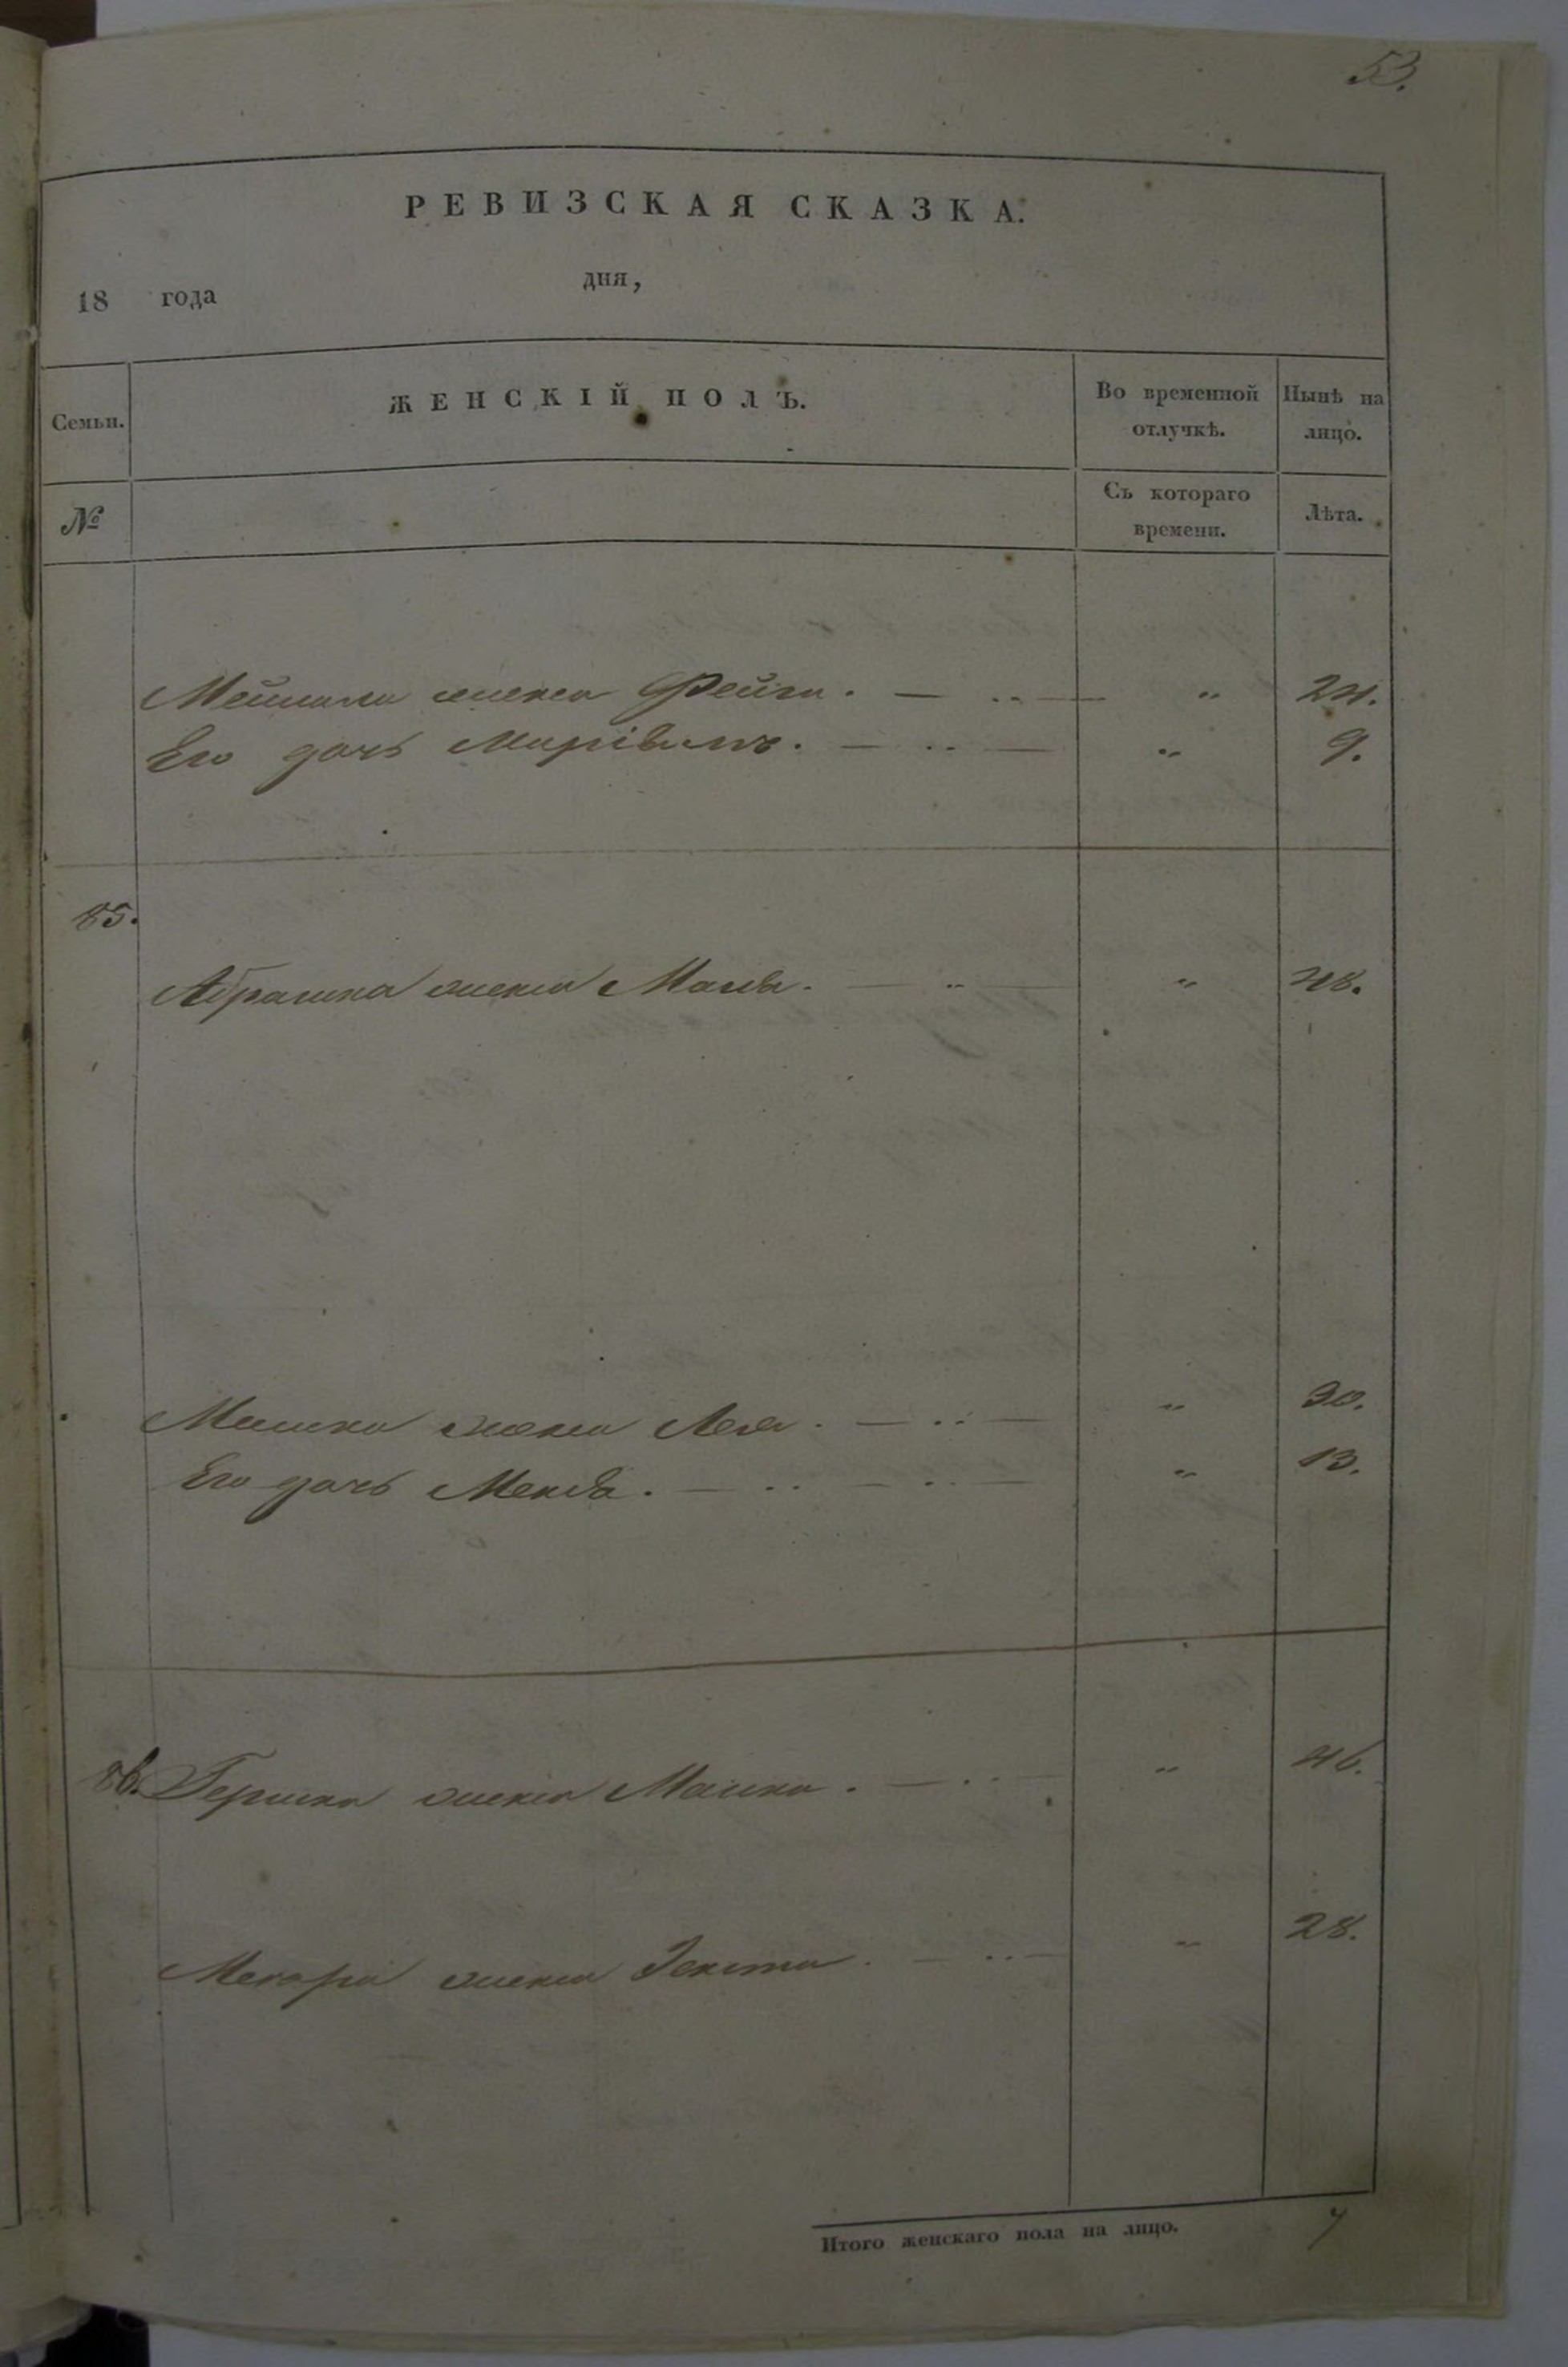 53.
РЕВИЗСКАЯ СКАЗКА.
18 года дня,
Семьи. ЖЕНСКІЙ ПОЛЪ. Во временной отлучкѣ. Нынѣ на лицо.
№ Съ котораго времени. Лѣта.
жена Фейга. — .. — " 24.
Его дочь — .. — " 9.
85.
Абрашка жена Мася. — .. — " 48.
Мошка жена Лея. — .. — " 30.
Его дочь — .. — .. — " 13.
86. Гершка жена Машка. — .. — " 46.
жена — .. — " 28.
Итого женскаго пола на лицо. 7